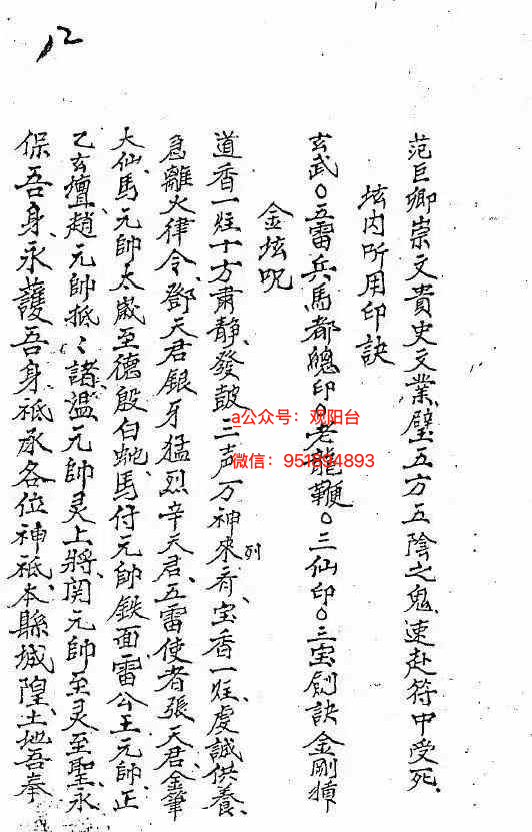 12
范巨卿崇文貴史文業壁五方五陰之鬼速赴符中受死
坛内所用印訣
玄武○五雷兵馬都總印○老龍鞭○三仙印○三宝劍訣金剛
金坛咒
道香一炷十方肅静發鼓三声万神來列
斉宝香一炷虔誠供養
急離火律令鄧天君銀牙猛烈辛天君五雷使者張天君金筆
大仙馬元帥太歲至德殷白虵馬付元帥鉄面雷公王元帥正
乙玄壇趙元帥抵〻諸温元帥灵上將関元帥至灵至聖永
保吾身永護吾身祗承各位神祗本縣城隍土地吾奉
a公众号：观阳台
微信：951894893